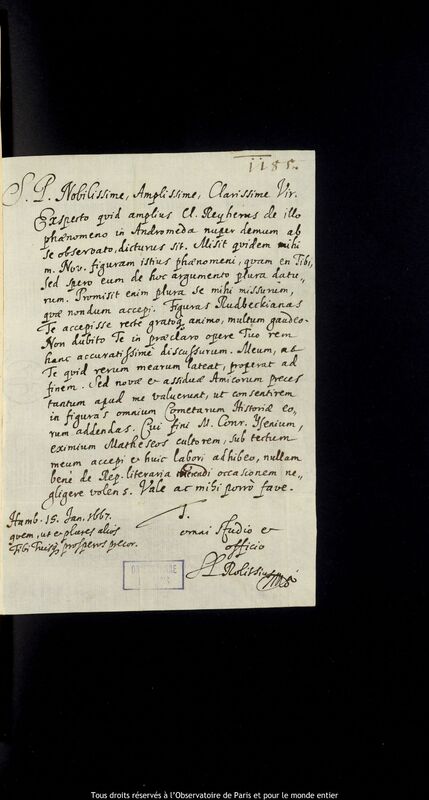 1185.
S. P. Nobilissime, Amplissime, Clarissime Vir.
Exspecto quid amplius Cl. Reyherus de illo
phænomeno in Andromeda nuper demum ab
se observato, dicturus sit. Misit quidem mihi
m. Nov. figuram istius phænomeni, quam en Tibi,
sed spero eum de hoc argumento plura datu„
rum. Promisit enim plura se mihi missurum,
quæ nondum accepi. Figuras Rudbeckianas
Te accepisse recte gratoq animo, multum gaudeo.
Non dubito Te in præclaro opere Tuo rem
hanc accuratissime discussurum. Meum, ne
Te quid rerum mearum lateat, properat ad
finem. Sed novæ et assiduæ Amicorum preces
tantum apud me valuerunt, ut consentirem
in figuras omnium Cometarum Historiæ eo„
rum addendas. Cui fini M. Conr.
eximium Matheseos cultorem, sub tectum
meum accepi et huic labori adhibeo, nullam
bene de Rep. literaria merendi occasionem ne„
gligere volens. Vale ac mihi porro fave.
Hamb. 15. Jan. 1667.
quem, ut et plures alios
Tibi Tuisq prosperos precor.
T.
omni studio et
officio
OBSERVATOIRE
Tous droits réservés à l'Observatoire de Paris et pour le monde entier